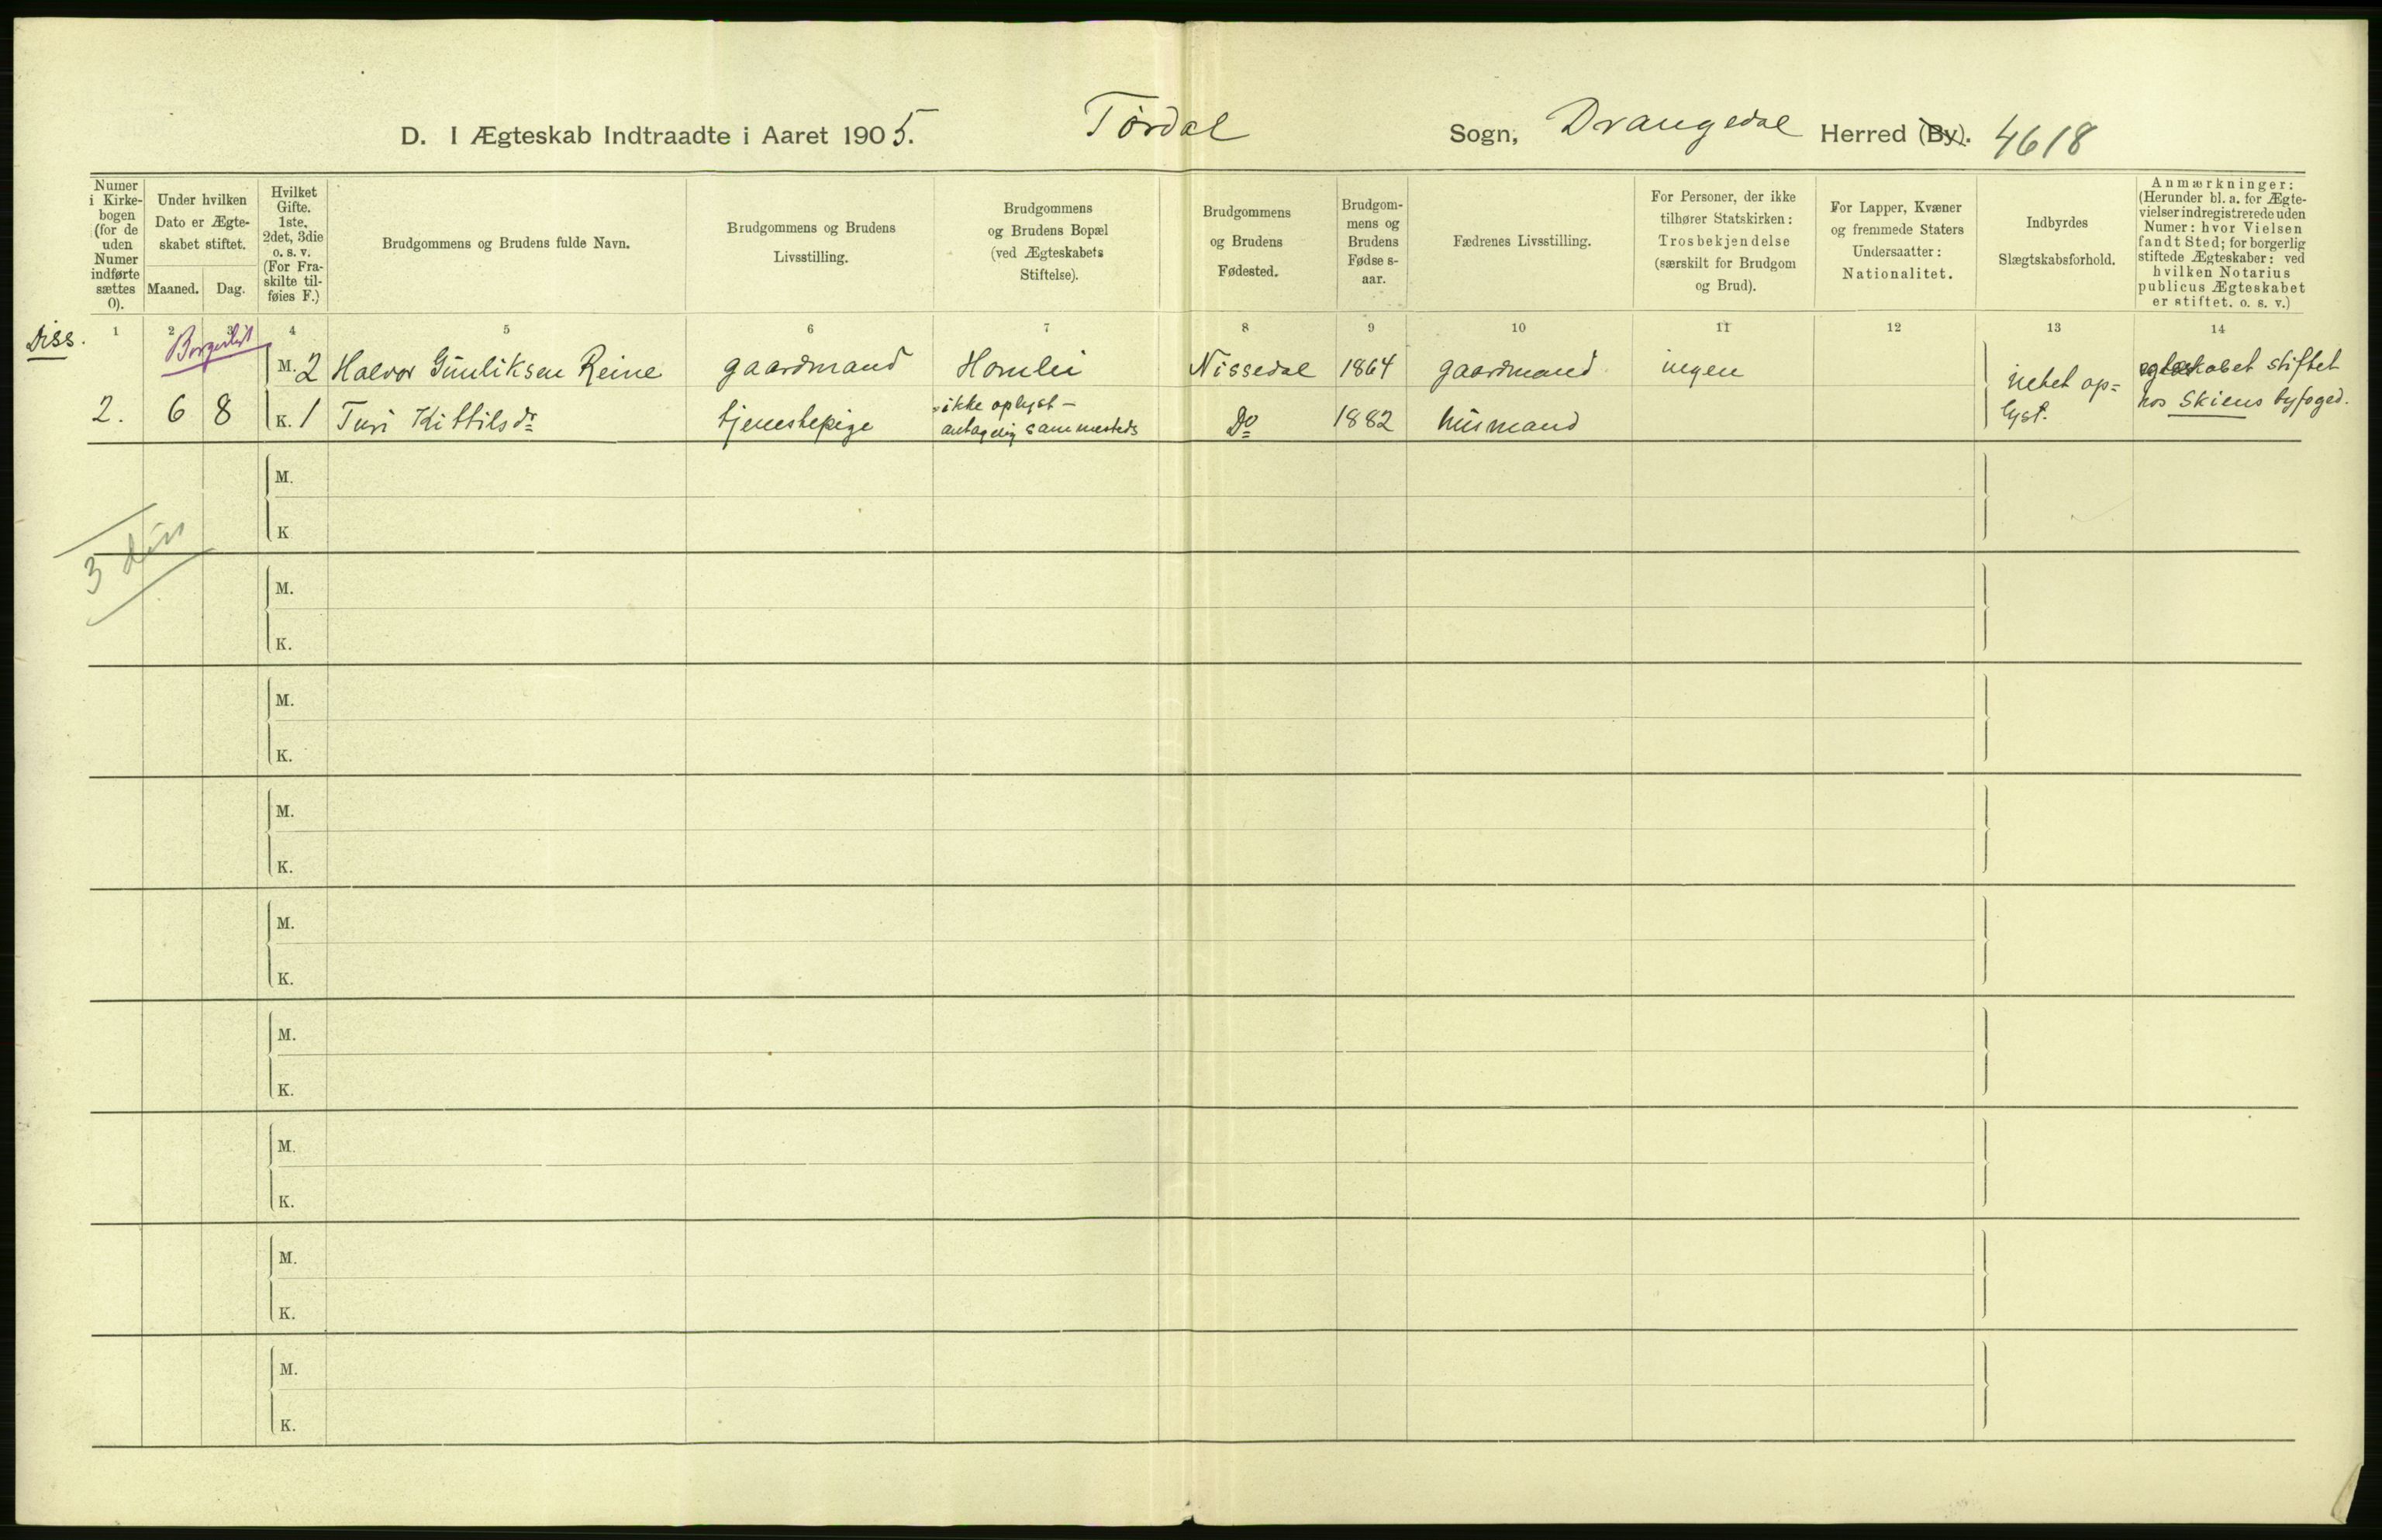 D. I Ægteskab Indtraadte i Aaret 1905. Tørdal Sogn, Drangedal Herred (By). 4618
Numer i Kirke-bogen (for de uden Numer indførte sættes 0).
Under hvilken Dato er Ægte-skabet stiftet.
Maaned. Dag.
Hvilket Gifte. 1ste, 2det, 3die o. s. v. (For Fra-skilte til-føies F.)
Brudgommens og Brudens fulde Navn.
Brudgommens og Brudens Livsstilling.
Brudgommens og Brudens Bopæl (ved Ægteskabets Stiftelse).
Brudgommens og Brudens Fødested.
Brudgom-mens og Brudens Fødse s-aar.
Fædrenes Livsstilling.
For Personer, der ikke tilhører Statskirken: Trosbekjendelse (særskilt for Brudgom og Brud).
For Lapper, Kvæner og fremmede Staters Undersaatter: Nationalitet.
Indbyrdes Slægtskabsforhold.
Anmærkninger: (Herunder bl. a. for Ægte-vielser indregistrerede uden Numer: hvor Vielsen fandt Sted; for borgerlig stiftede Ægteskaber: ved hvilken Notarius publicus Ægteskabet er stiftet. o. s. v.)
1 2 3 4 5 6 7 8 9 10 11 12 13 14
Diss.
Borgerligt
M. 2 Halvor Gunliksen Reine gaardmand Homlei Nissedal 1864 gaardmand ingen
2. 6 8 K. 1 Turi Kittilsdr tjenestepige ikke oplyst – antagelig sammesteds Do 1882 husmand
intet op=
lyst.
egteskabet stiftet
hos Skiens byfoged.
M.
K
3 diss
M.
K.
M.
K.
M.
K.
M.
K.
M.
K.
M.
K.
M.
K.
M.
K.